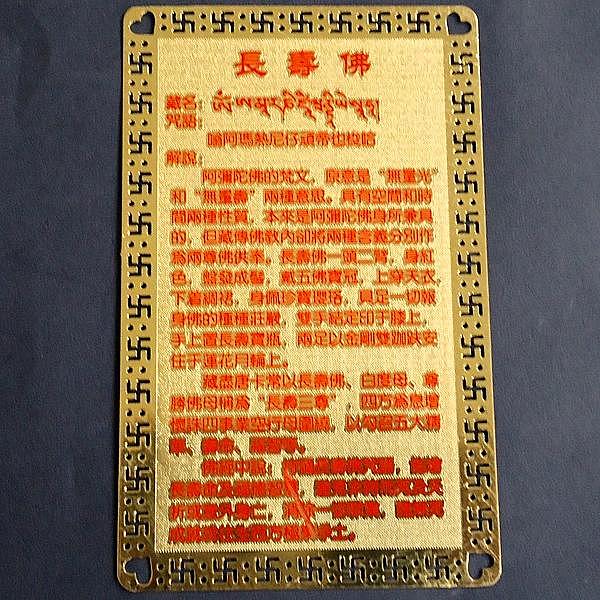 長壽佛
藏名：
咒語：ༀ་ཨ་མཱ་ར་ཎི་ཛཱི་ཝནྟི་ཡེ་སྭཱ་ཧཱ།
嗡阿瑪熱尼仔頑帝也梭哈
解說：
阿彌陀佛的梵文，原意是“無量光”
和“無量壽”兩種意思。具有空間和時
間兩種性質，本來是阿彌陀佛身所兼具
的，但藏傳佛教內卻將兩種含義分別作
為兩尊佛供奉。長壽佛一頭二臂，身紅
色，盤發成髻，戴五佛寶冠，上穿天衣，
下着綢裙，身佩珍寶瓔珞，具足一切報
身佛的種種莊嚴，雙手結定印于膝上，
手上置長壽寶瓶，兩足以金剛雙跏趺安
住于蓮花月輪上。
藏密唐卡常以長壽佛、白度母、尊
勝佛母稱為“長壽三尊”，四方為息增
懷誅四事業空行母圍繞，以勾召五大精
佛經中說：